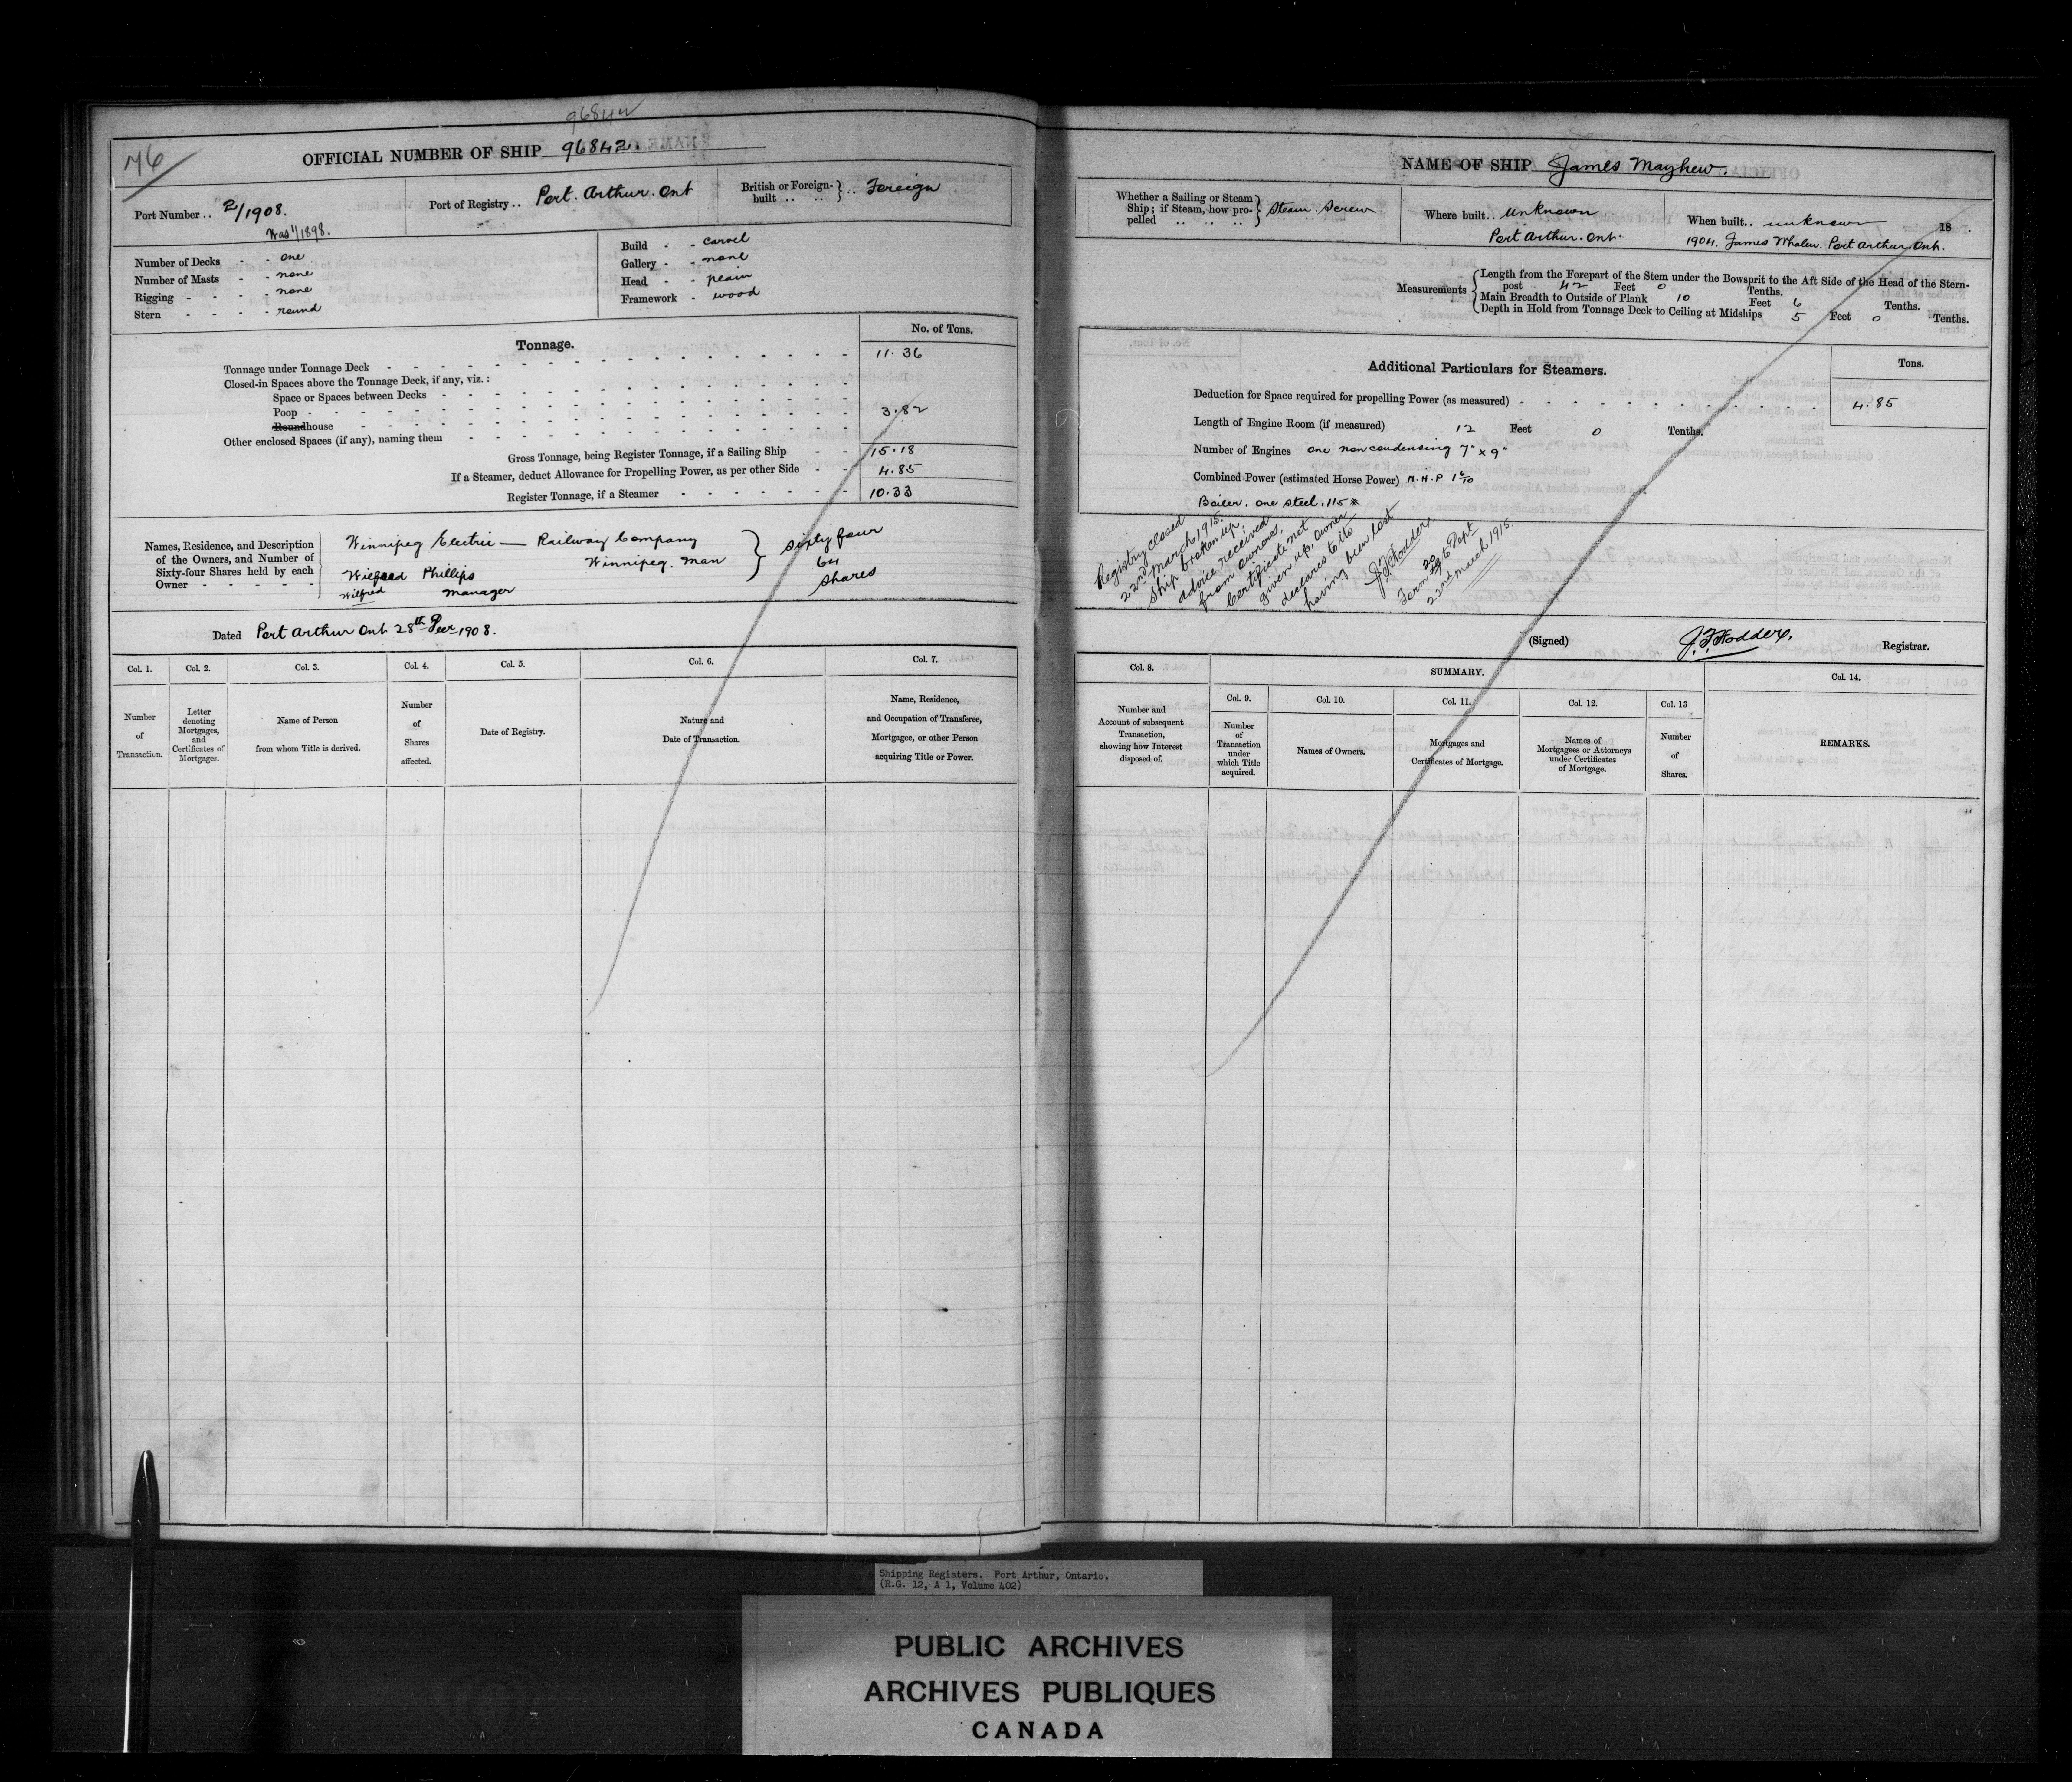 96842
76
OFFICIAL NUMBER OF SHIP 96842.
Port Number .. 2/1908.
Was 1/1898.
Port of Registry .. Port Arthur. Ont
British or Foreign-built .. .. } .. Foreign
Number of Decks - - one
Number of Masts - - none
Rigging - - - - none
Stern - - - - round
Build - - carvel
Gallery - - none
Head - - plain
Framework - wood
Tonnage.
No. of Tons.
Tonnage under Tonnage Deck 11.36
Closed-in Spaces above the Tonnage Deck, if any, viz.:
Space or Spaces between Decks
Poop 3.82
Roundhouse
Other enclosed Spaces (if any), naming them
Gross Tonnage, being Register Tonnage, if a Sailing Ship - - 15.18
If a Steamer, deduct Allowance for Propelling Power, as per other Side - - 4.85
Register Tonnage, if a Steamer 10.33
Names, Residence, and Description
of the Owners, and Number of
Sixty-four Shares held by each
Owner
Winnipeg Electric — Railway Company
Winnipeg. Man
Wilfred Phillips
Wilfred manager
Sixty four
64
shares
Dated Port Arthur Ont 28th 1908.
Col. 1.
Col. 2.
Col. 3.
Col. 4.
Col. 5.
Col. 6.
Col. 7.
Number
of
Transaction.
Letter
denoting
Mortgages,
and
Certificates of
Mortgages.
Name of Person
from whom Title is derived.
Number
of
Shares
affected.
Date of Registry.
Nature and
Date of Transaction.
Name, Residence,
and Occupation of Transferee,
Mortgagee, or other Person
acquiring Title or Power.
NAME OF SHIP James Mayhew.
Whether a Sailing or Steam
Ship; if Steam, how pro-
pelled .. .. .. .. } Steam Screw
Where built .. unknown
Port Arthur. Ont.
When built .. unknown 18 .
1904. James Whalen. Port Arthur. Ont.
Measurements
Length from the Forepart of the Stem under the Bowsprit to the Aft Side of the Head of the Stern-
post 42 Feet 0 Tenths.
Main Breadth to Outside of Plank 10 Feet 6 Tenths.
Depth in Hold from Tonnage Deck to Ceiling at Midships 5 Feet 0 Tenths.
Additional Particulars for Steamers.
Tons.
Deduction for Space required for propelling Power (as measured) 4.85
Length of Engine Room (if measured) 12 Feet 0 Tenths.
Number of Engines one non condensing 7" x 9"
Combined Power (estimated Horse Power) N.H.P 1 6/10
Boiler. one steel. 115 #
Registry closed
22nd March 1915.
Ship broken up.
advice received
from owners.
Certificate not
given up, owner
declares to its
having been lost
J.F. Hodder.
Form 20 to Dept
22nd March 1915.
(Signed) J. F. Hodder. Registrar.
Col. 8.
SUMMARY.
Col. 14.
Col. 9.
Col. 10.
Col. 11.
Col. 12.
Col. 13
Number and
Account of subsequent
Transaction,
showing how Interest
disposed of.
Number
of
Transaction
under
which Title
acquired.
Names of Owners.
Mortgages and
Certificates of Mortgage.
Names of
Mortgagees or Attorneys
under Certificates
of Mortgage.
Number
of
Shares.
REMARKS.
Shipping Registers. Port Arthur, Ontario.
(R.G. 12, A 1, Volume 402)
PUBLIC ARCHIVES
ARCHIVES PUBLIQUES
CANADA